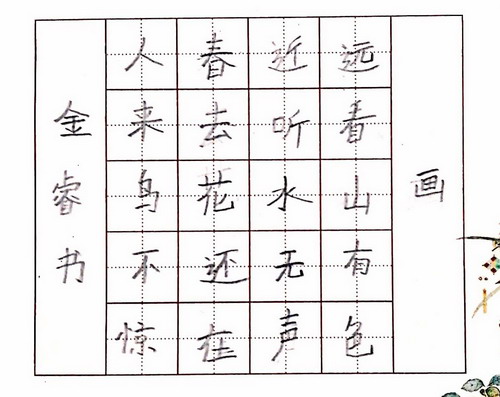 画
远看山有色
近听水无声
春去花还在
人来鸟不惊
金睿书